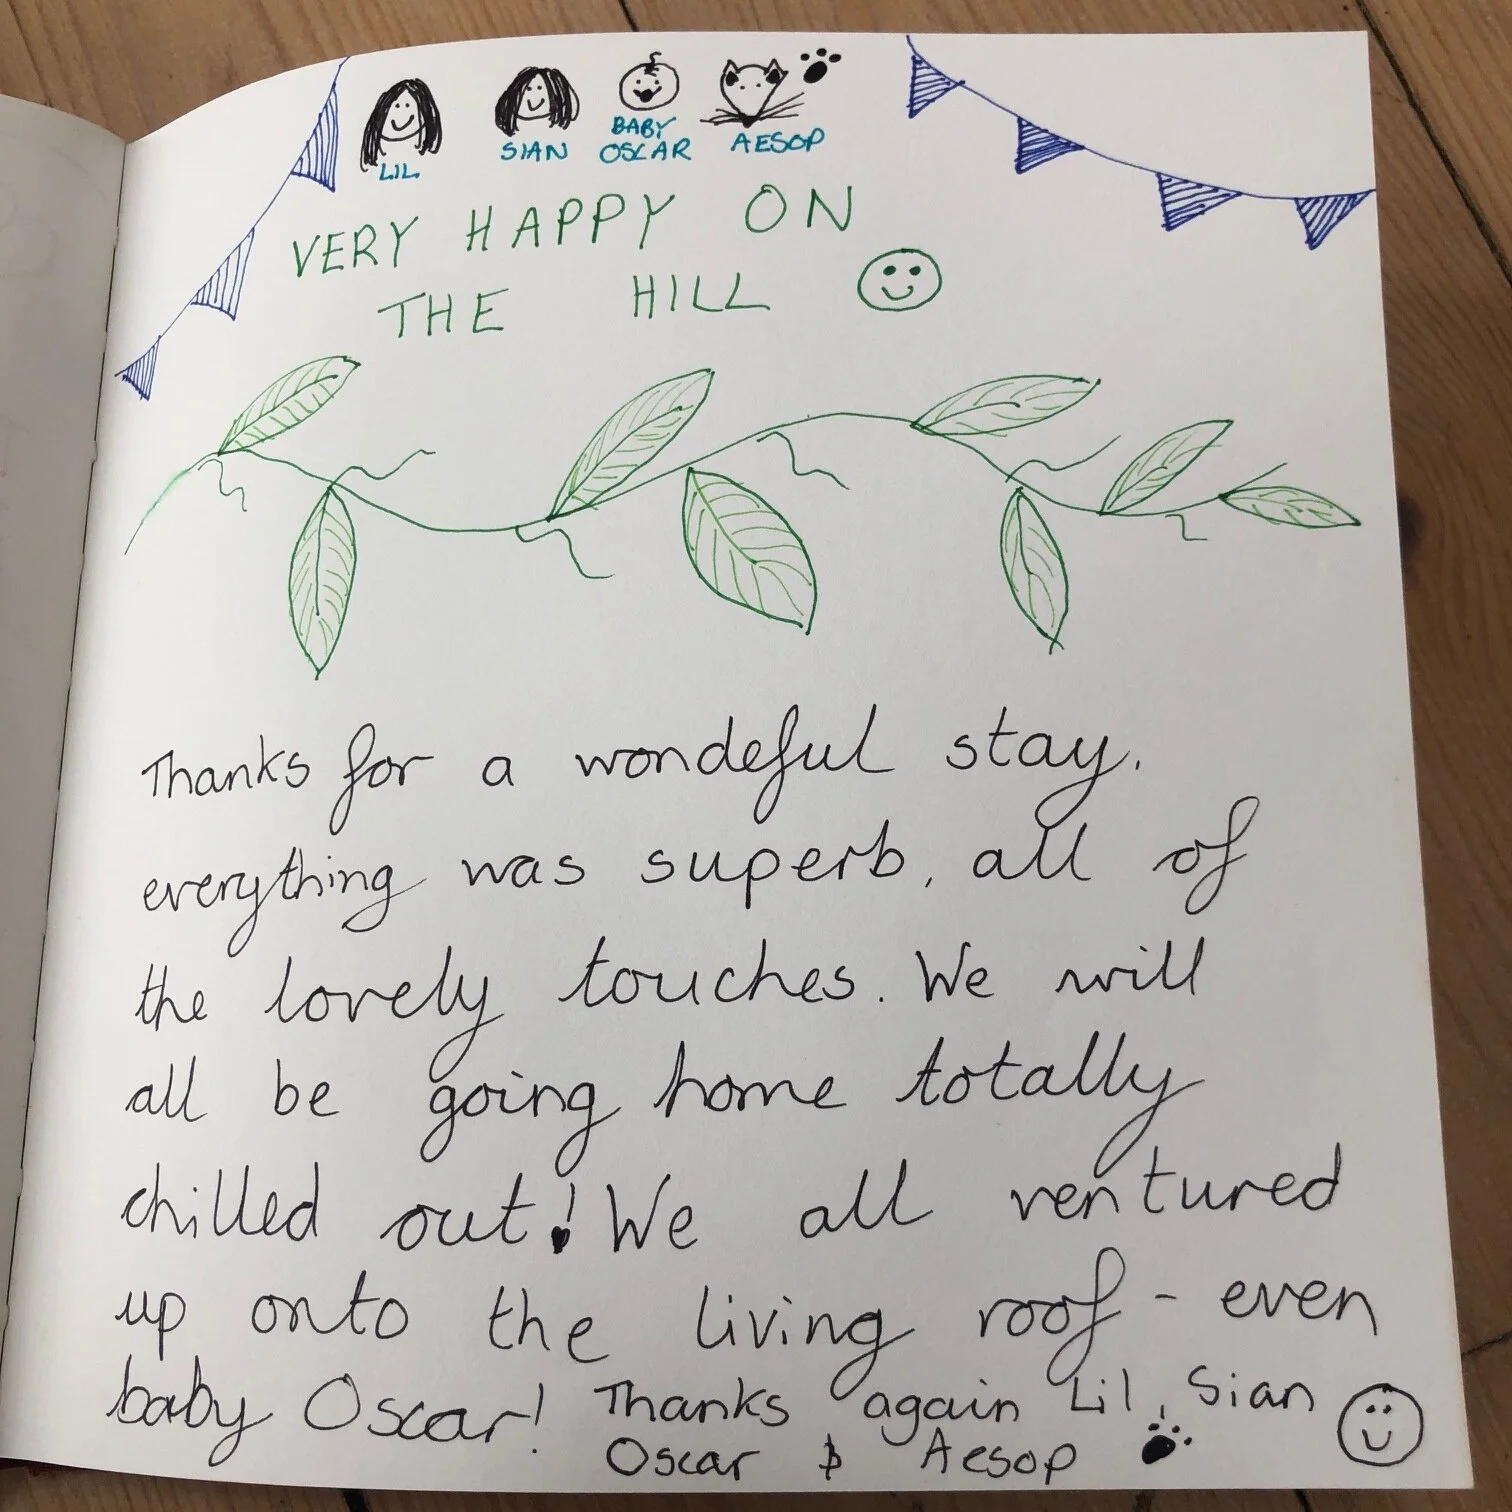 LIL SIAN BABY OSCAR AESOP
VERY HAPPY ON
THE HILL
Thanks for a wondeful stay.
everything was superb, all of
the lovely touches. We will
all be going home totally
chilled out! We all ventured
up onto the living roof - even
baby Oscar! Thanks again Lil, Sian
Oscar & Aesop